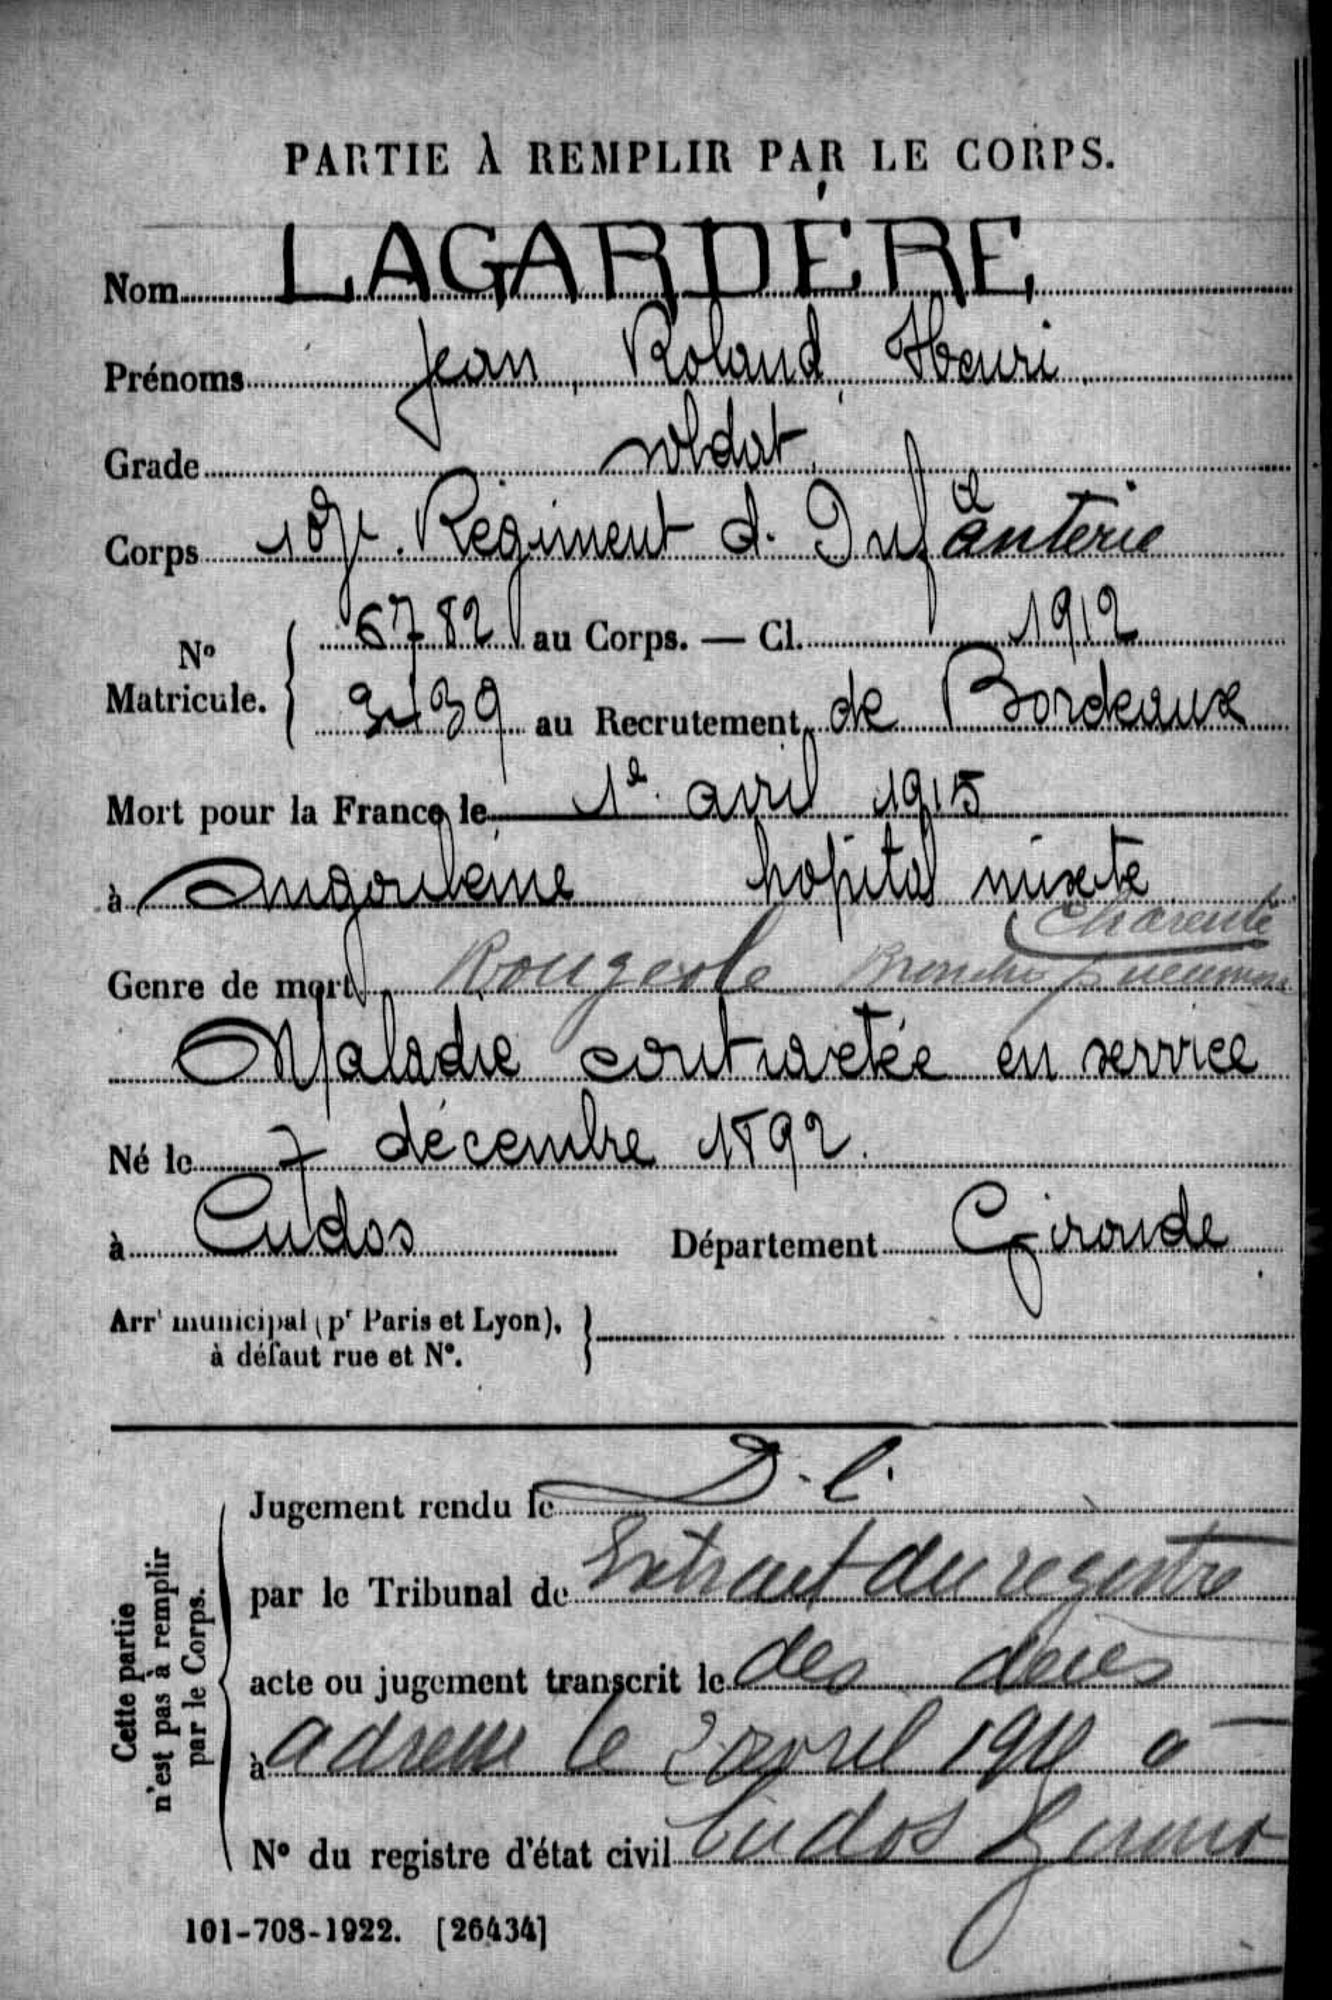 PARTIE À REMPLIR PAR LE CORPS.
Nom LAGARDÈRE
Prénoms Jean, Roland, Henri
Grade soldat
Corps 107e. Régiment d. Infanterie
No Matricule. 6782 au Corps. — Cl. 1912
3439 au Recrutement de Bordeaux
Mort pour la France le 1e avril 1915
à Angoulème hopital mixte
Charente
Genre de mort Rougeole Broncho pneumonie
Maladie contractée en service
Né le 7 décembre 1892.
à Cudos Département Gironde
Arrt municipal (pr Paris et Lyon),
à défaut rue et No.
Cette partie
n'est pas à remplir
par le Corps.
Jugement rendu le D. C.
par le Tribunal de Extrait du registre
acte ou jugement transcrit le des
à adressé le 2 avril à
No du registre d'état civil Cudos
101-708-1922. [26434]